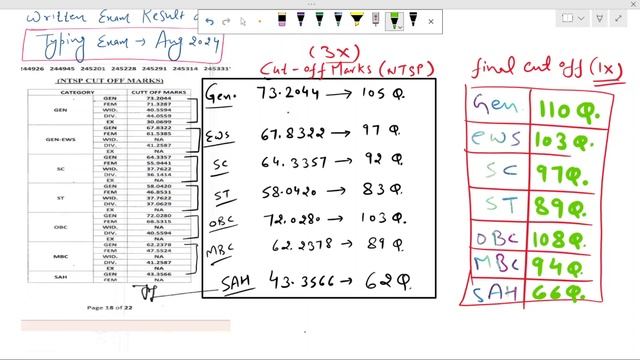 Written Exam Result
Typing Exam → Aug 2024
244926 244945 245201 245207 245291 245314 24533
(NTSP CUT OFF MARKS)
CATEGORY CUTT OFF MARKS
GEN GEN 73.2044
FEM 71.3287
WID. 40.5594
DIV. 44.0559
EX 30.0699
GEN-EWS GEN 67.8322
FEM 61.5385
WID. NA
DIV. 41.2587
EX NA
SC GEN 64.3357
FEM 55.9441
WID. 37.7622
DIV. 36.1414
EX NA
ST GEN 58.0420
FEM 46.8531
WID. 37.7622
DIV. 37.0629
EX NA
OBC GEN 72.0280
FEM 68.5315
WID. NA
DIV. 40.5594
EX NA
MBC GEN 62.2378
FEM 47.5524
WID. NA
DIV. 41.2587
EX NA
SAH GEN 43.3566
FEM NA
Page 18 of 22
(3x)
Cut-off Marks (NTSP)
Gen. 73.2044 → 105 Q.
EWS 67.8322 → 97 Q.
SC 64.3357 → 92 Q.
ST 58.0420 → 83 Q.
OBC 72.0280 → 103 Q.
MBC 62.2378 → 89 Q.
SAH 43.3566 → 62 Q.
final cut off (1x)
Gen. 110 Q.
EWS 103 Q.
SC 97 Q.
ST 89 Q.
OBC 108 Q.
MBC 94 Q.
SAH 66 Q.